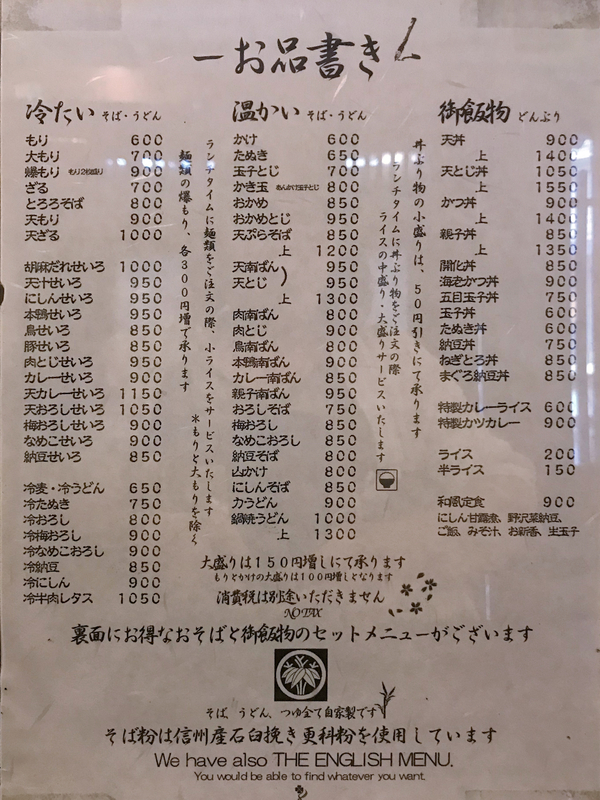 お品書き
冷たい そば・うどん
もり 600
大もり 700
爆もり もり2枚盛り 900
ざる 700
とろろそば 800
天もり 900
天ざる 1000
胡麻だれせいろ 1000
天汁せいろ 950
にしんせいろ 950
本鴨せいろ 950
鳥せいろ 850
豚せいろ 850
肉とじせいろ 950
カレーせいろ 900
天カレーせいろ 1150
天おろしせいろ 1050
梅おろしせいろ 900
なめこせいろ 900
納豆せいろ 850
冷麦・冷うどん 650
冷たぬき 750
冷おろし 800
冷梅おろし 900
冷なめこおろし 900
冷納豆 850
冷にしん 900
冷牛肉レタス 1050
ランチタイムに麺類をご注文の際、小ライスをサービスいたします
*もりと大もりを除く
麺類の爆もり、各300円増て承ります
温かい そば・うどん
かけ 600
たぬき 650
玉子とじ 700
かき玉 あんかけ玉子とじ 800
おかめ 850
おかめとじ 950
天ぷらそば 850
上 1200
天南ばん 950
天とじ 950
上 1300
肉南ばん 800
肉とじ 900
鳥南ばん 800
本鴨南ばん 900
カレー南ばん 850
親子南ばん 950
おろしそば 750
梅おろし 850
なめこおろし 850
納豆そば 800
山かけ 800
にしんそば 850
力うどん 900
鍋焼うどん 1000
上 1300
丼ぶり物の小盛りは、50円引きにて承ります
ランチタイムに丼ぶり物をご注文の際
ライスの中盛り・大盛りサービスいたします
御飯物 どんぶり
天丼 900
上 1400
天とじ丼 1050
上 1550
かつ丼 900
上 1400
親子丼 850
上 1350
開化丼 850
海老かつ丼 900
五目玉子丼 750
玉子丼 600
たぬき丼 600
納豆丼 750
ねぎとろ丼 850
まぐろ納豆丼 850
特製カレーライス 600
特製カツカレー 900
ライス 200
半ライス 150
和風定食 900
にしん甘露煮、野沢菜納豆、
ご飯、みそ汁、お新香、生玉子
大盛りは150円増しにて承ります
もりとかけの大盛りは100円増しとなります
消費税は別途いただきません
NO TAX
裏面にお得なおそばと御飯物のセットメニューがございます
そば、うどん、つゆ全て自家製です
そば粉は信州産石臼挽き更科粉を使用しています
We have also THE ENGLISH MENU.
You would be able to find whatever you want.